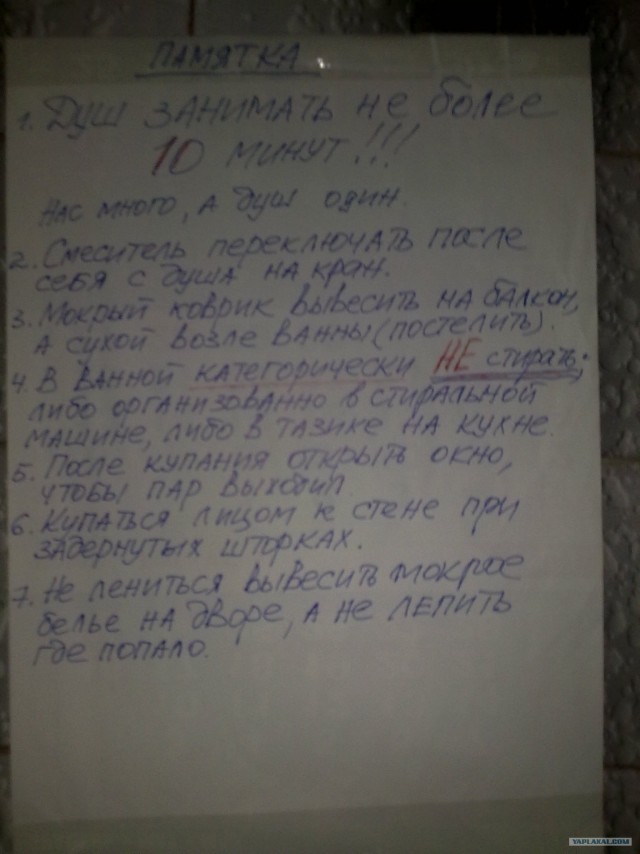 ПАМЯТКА
1. Душ занимать не более
10 минут!!!
Нас много, а душ один.
2. Смеситель переключать после
себя с душа на кран.
3. Мокрый коврик вывесить на балкон,
а сухой возле ванны (постелить).
4. В ванной категорически НЕ стирать,
либо организованно в стиральной
машине, либо в тазике на кухне.
5. После купания открыть окно,
чтобы пар выходил
6. Купаться лицом к стене при
задернутых шторках.
7. Не лениться вывесить мокрое
белье на дворе, а не лепить
где попало.
YAPLAKAL.COM